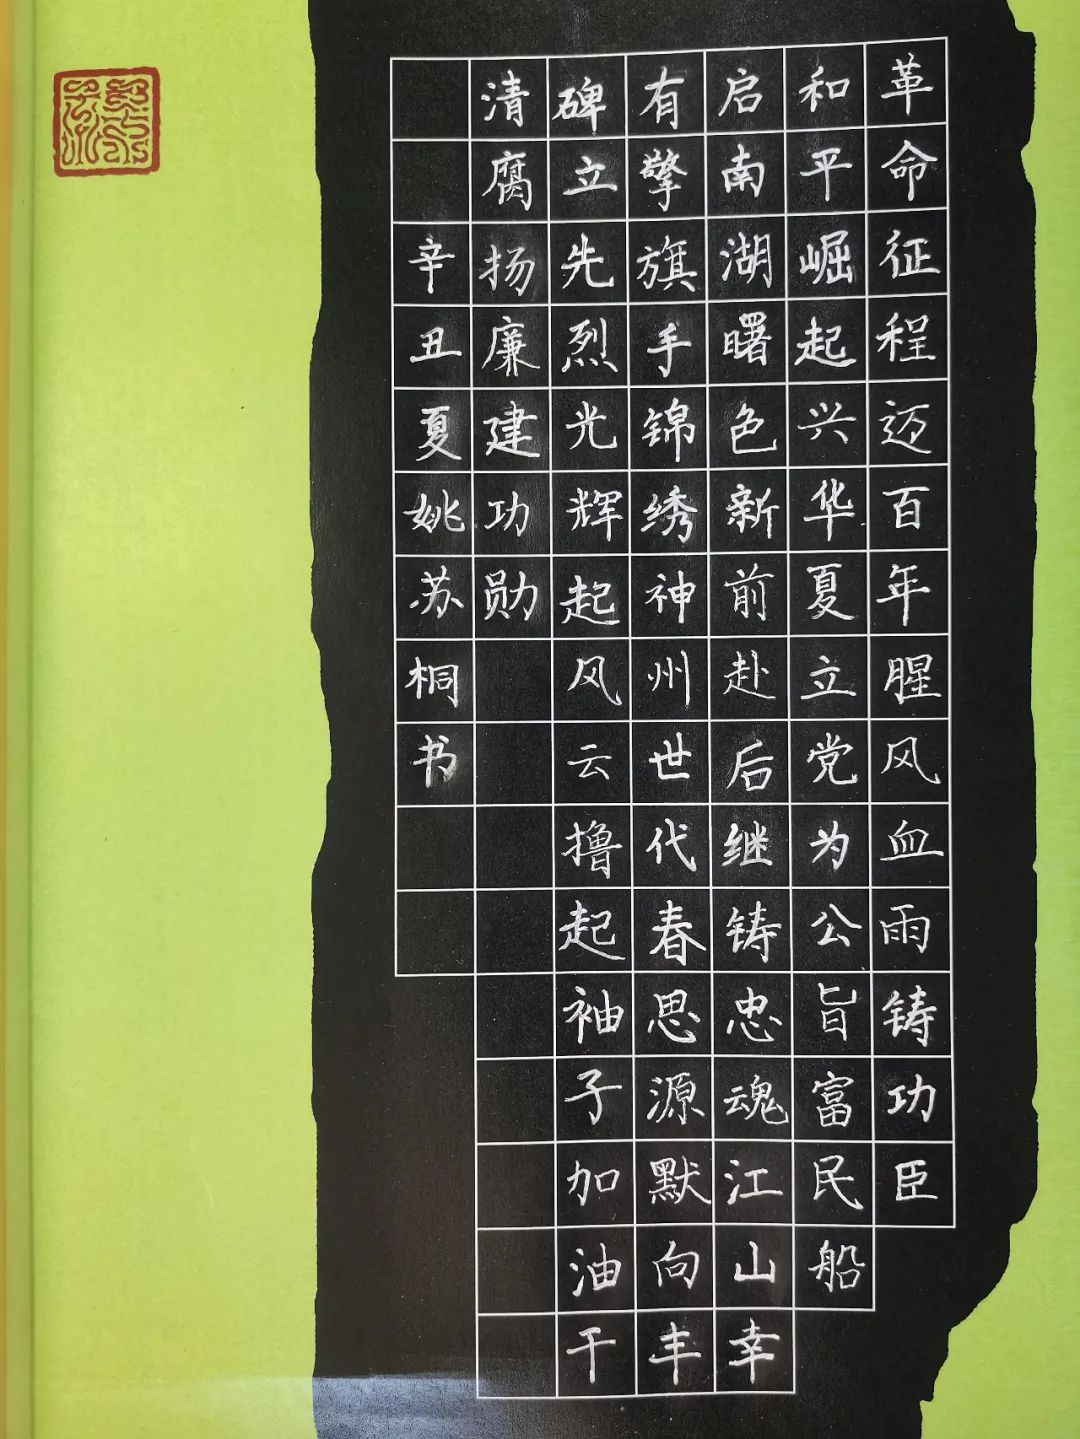 革命征程迈百年腥风血雨铸功臣
和平崛起兴华夏立党为公旨富民船
启南湖曙色新前赴后继铸忠魂江山幸
有擎旗手锦绣神州世代春思源默向丰
碑立先烈光辉起风云撸起袖子加油干
清腐扬廉建功勋
辛丑夏姚苏桐书